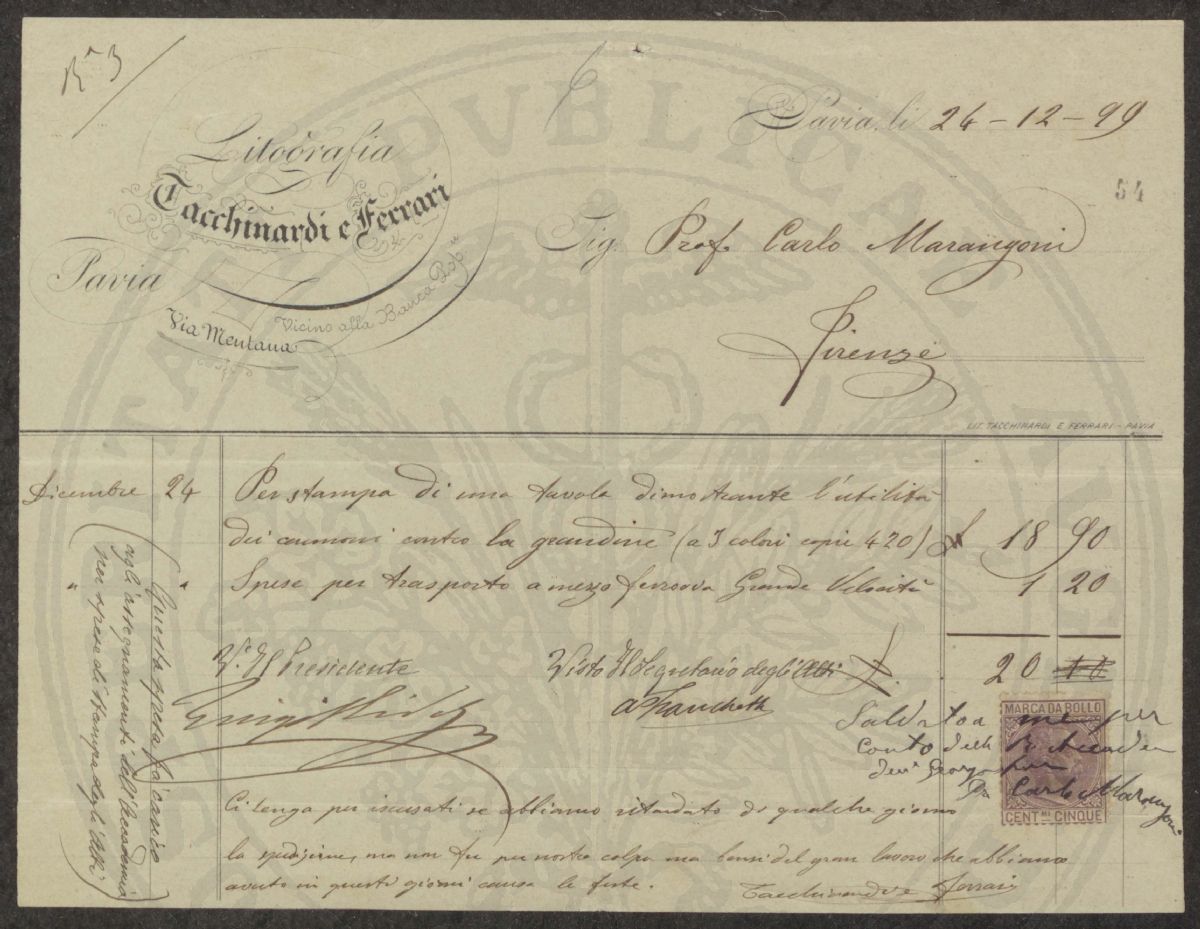 N° 3
Litografia
Tacchinardi e Ferrari
Pavia
Via Mentana
Vicino alla Banca Pop.
Pavia, li 24-12-99
54
Sig. Prof. Carlo Marangoni
Firenze
LIT. TACCHINARDI E FERRARI - PAVIA
Dicembre 24 Per stampa di una tavola dimostrante l'utilità
dei cannoni contro la grandine (a 3 colori copie 420) £ 18 90
" " Spese per trasporto a mezzo ferrovia Grande Velocità 1 20
V. Il Presidente Visto Il Segretario degli Atti £. 20 10
Luigi A Franchetti
MARCA DA BOLLO
CENT.MI CINQUE
Saldato a me per
conto della R. Accade
dei Georgo
Dr Carlo Marangoni
Ci tenga per iscusati se abbiamo ritardato di qualche giorno
la spedizione, ma non fu per nostra colpa ma bensì del gran lavoro che abbiamo
avuto in questi giorni causa le feste.
Tacchinardi e Ferrari
(Questa spesa fa carico
agli assegnamenti dell'Accademia
per spese di stampa degli Atti)
PVBLICAE